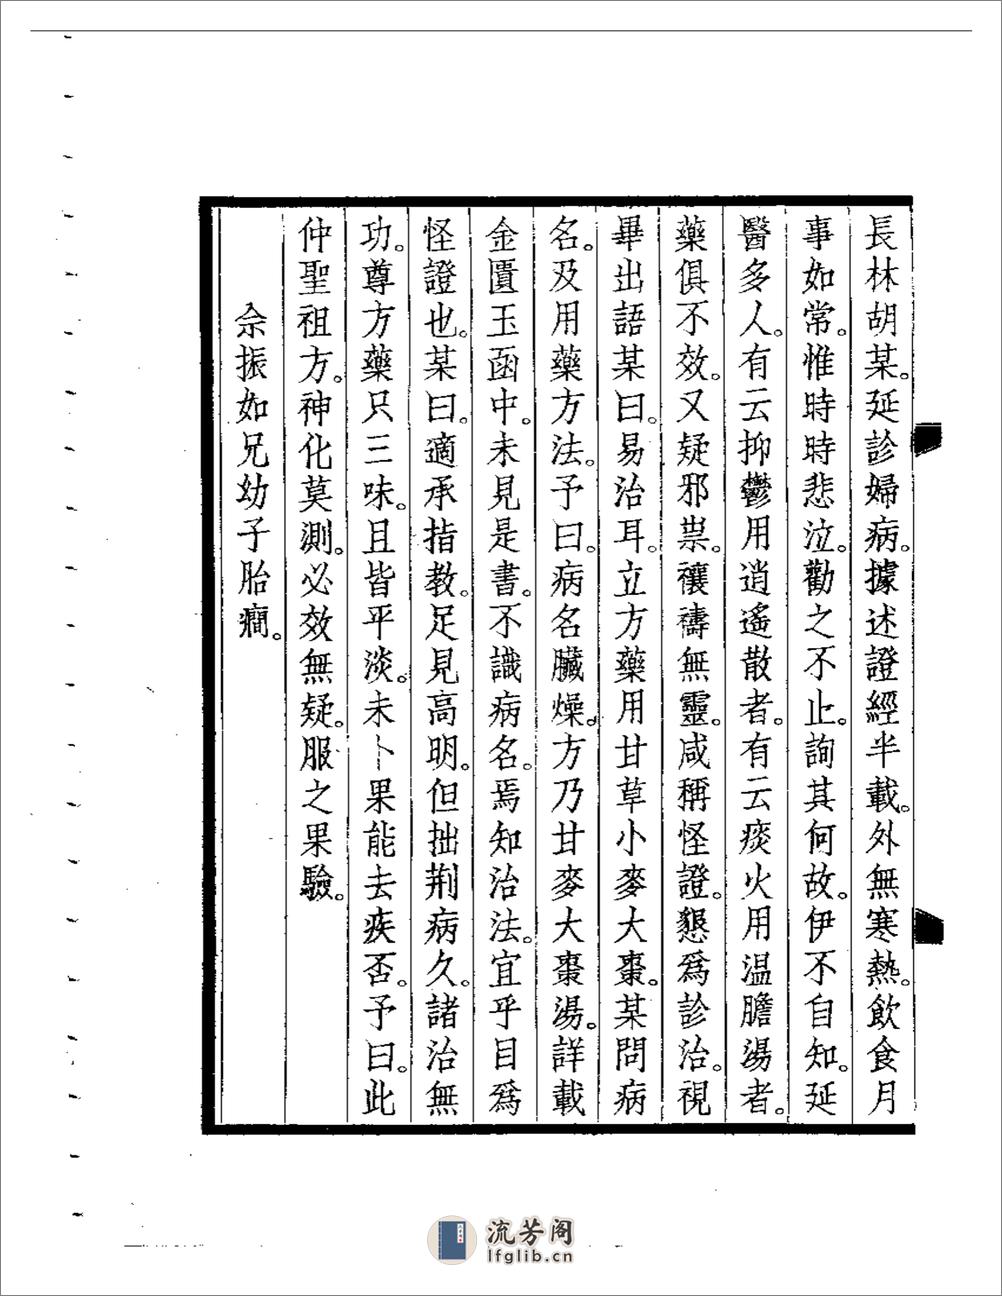 長林胡某。延診婦病。據述證經半載。外無寒熱。飲食月
事如常。惟時時悲泣。勸之不止。詢其何故。伊不自知。延
醫多人。有云抑鬱用逍遙散者。有云痰火用温膽湯者。
藥俱不效。又疑邪祟。禳禱無靈。咸稱怪證。懇爲診治。視
畢出語某曰。易治耳。立方藥用甘草小麥大棗。某問病
名。及用藥方法。予曰。病名臟燥。方乃甘麥大棗湯。詳載
金匱玉函中。未見是書。不識病名。焉知治法。宜乎目爲
怪證也。某曰。適承指教。足見高明。但拙荆病久。諸治無
功。尊方藥只三味。且皆平淡。未卜果能去疾否。予曰。此
仲聖祖方。神化莫測。必效無疑。服之果驗。
余振如兄幼子胎癎。
流芳阁
lfglib.cn